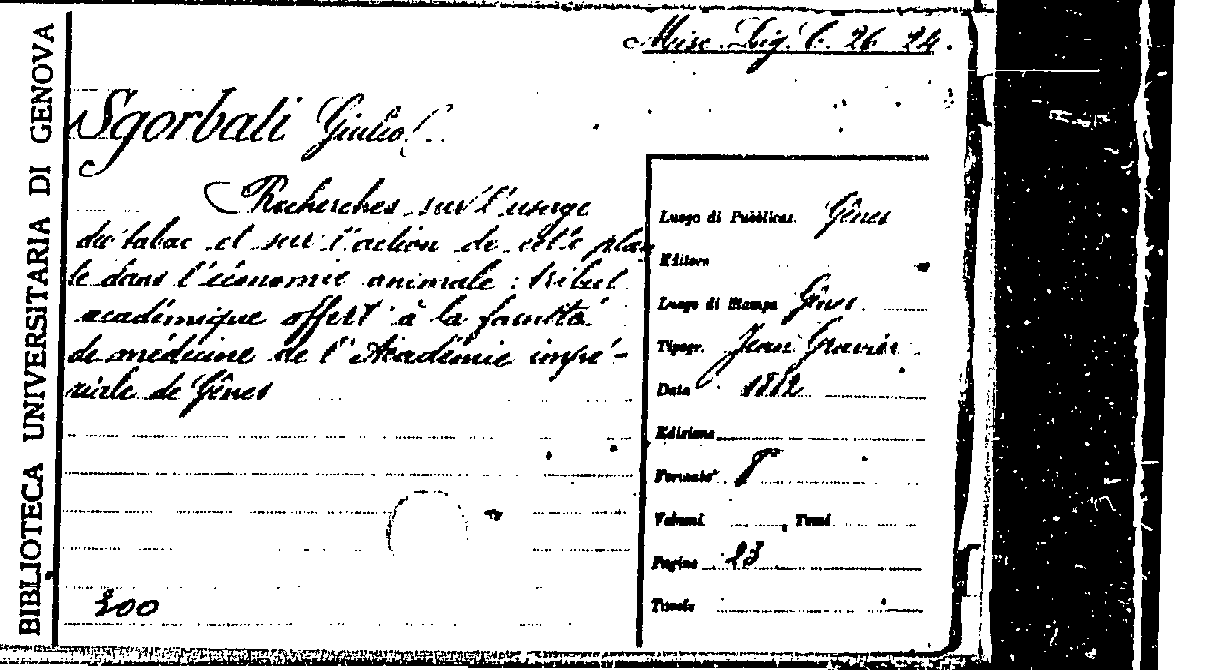 Misc. Lig. C. 26 24.
BIBLIOTECA UNIVERSITARIA DI GENOVA
Sgorbati Giulio C.
Recherches sur l'usage
du tabac et sur l'action de cette plan
te dans l'économie animale : tribut
académique offert à la faculté
de médicine de l'Académie impé-
riale de Gênes
200
Luogo di Pubblicaz. Gênes
Editore
Luogo di Stampa Gênes
Tipogr. Jean Gravier
Data 1812
Edizione
Formato 8°
Volumi , Tomi
Pagine 23
Tavole